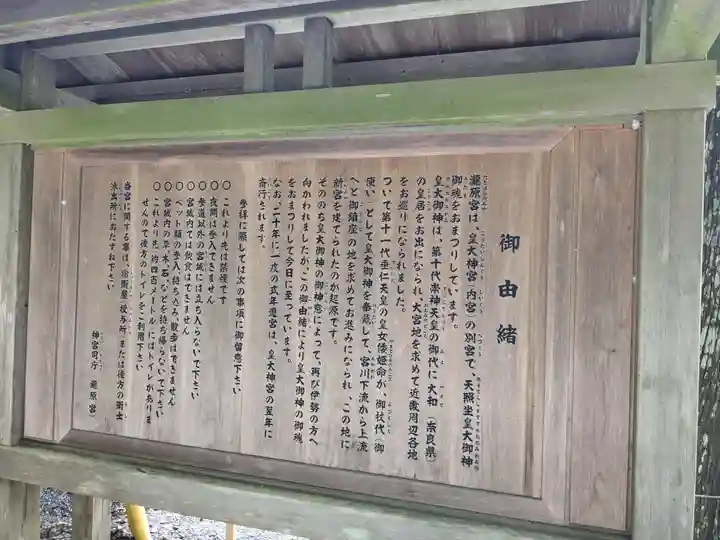 御由緒
瀧原宮は、皇大神宮(内宮)の別宮で、天照坐皇大御神
御魂をおまつりしています。
皇大御神は、第十代崇神天皇の御代に大和(奈良県)
の皇居をお出になられ、大宮地を求めて近畿周辺各地
をお巡りになられました。
ついで第十一代垂仁天皇の皇女倭姫命が、御杖代(御
使い)として皇大御神を奉戴して、宮川下流から上流
へと御鎮座の地を求めてお進みになられ、この地に
新宮を建てられたのが起源です。
そののち皇大御神の御神意によって、再び伊勢の方へ
向かわれましたが、この御由緒により皇大御神の御魂
をおまつりして今日に至っています。
なお、二十年に一度の式年遷宮は、皇大神宮の翌年に
斎行されます。
参拝に際しては次の事項に御留意下さい
○これより先は禁煙です
○夜間は参入できません
○参道以外の宮域には立ち入らないで下さい
○宮域内では飲食はできません
○ペット類の参入、持ち込み、散歩はできません
○宮域内の草、木、石などを持ち帰らないで下さい
○これより先、約四百メートルにはトイレがありま
せんので後方のトイレをご利用下さい
当宮に関する事は、宿衛屋(授与所)または後方の衛士
派出所におたずね下さい
神宮司庁 瀧原宮